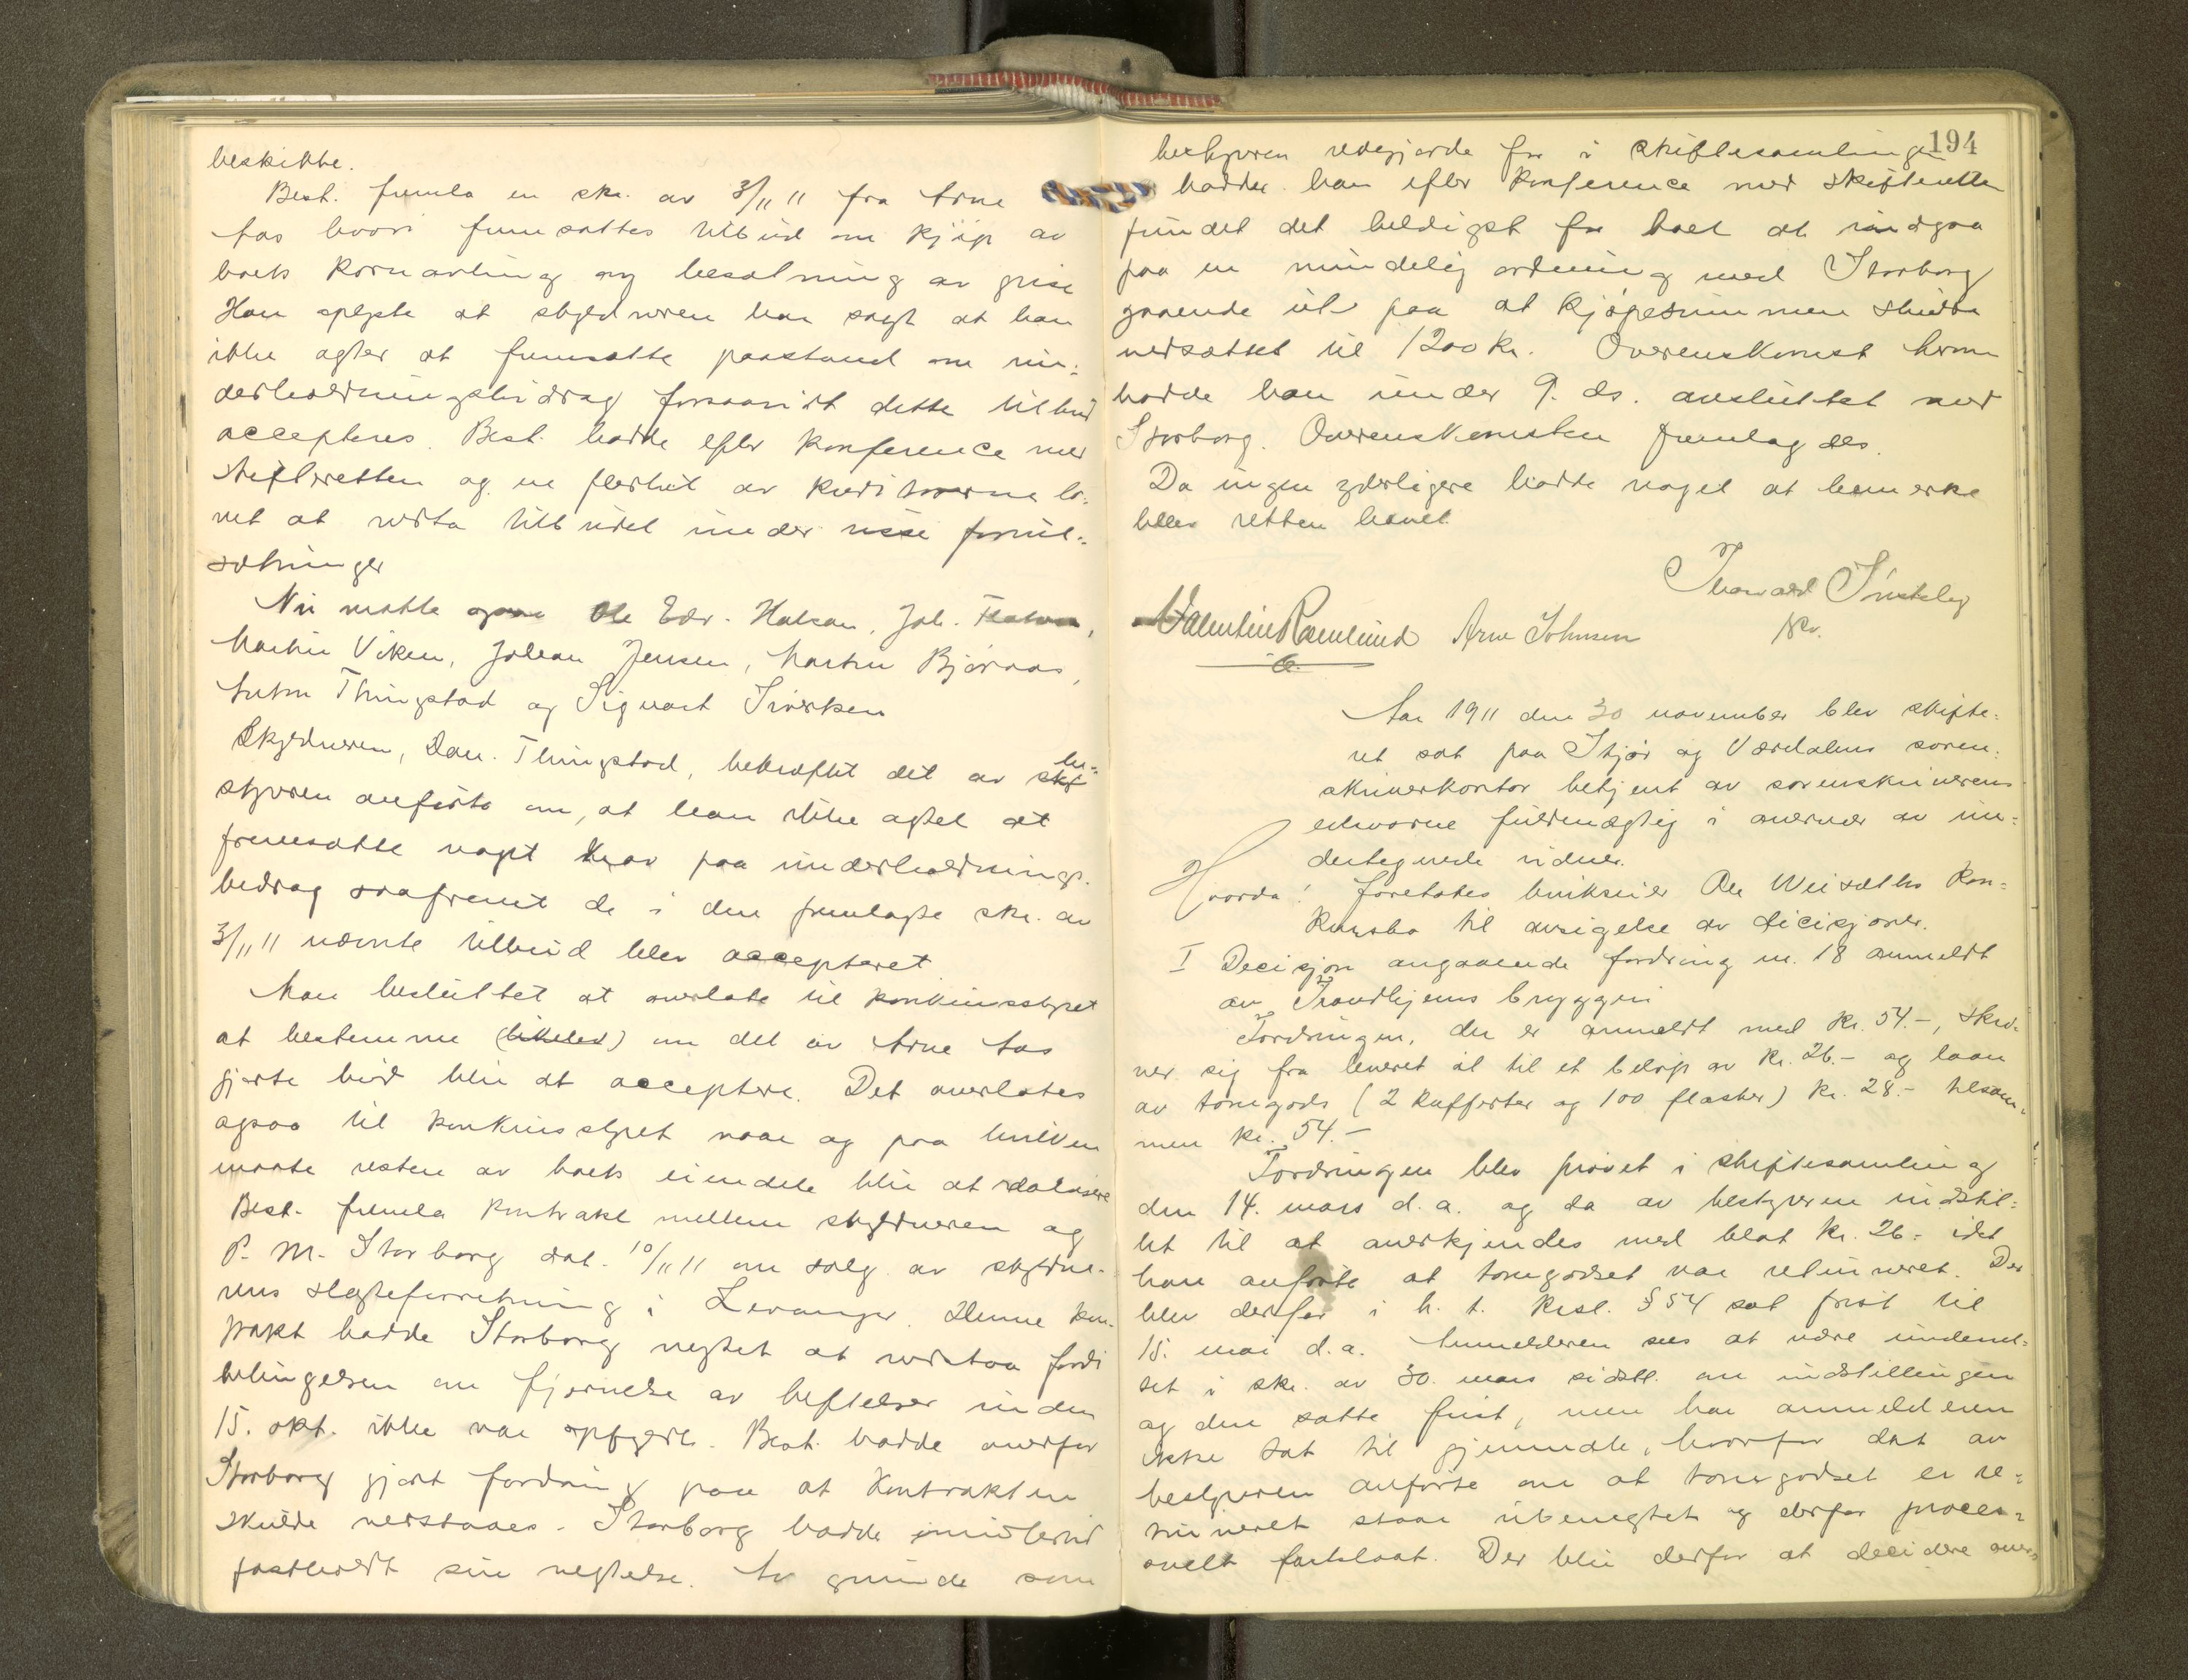 beskikke.
Best. fremla en skr. av 3/11 11 fra Arne
Aas hvori fremsattes tilbud om kjöp av
boets kornavling og besætning av grise
Han oplyste at skyldneren har sagt at han
ikke agter at fremsætte paastand om un:
derholdningsbidrag forsaavidt dette tilbud
accepteres. Best. hadde efter konference med
skifteretten og en flerhet av kreditorerne lo:
vet at vedta tilbudet under visse forut:
sætninger
Nu møtte Ole Edv. Halsan, Joh.
Martin Viken, Johan Jensen, Martin Bjørnaas,
Anton Thingstad og Sigvart Sivertsen
Skyldneren, Dan. Thingstad, bekræftet det av be=
styreren anførte om, at han ikke agtet at
fremsætte noget krav paa underholdnings-
bidrag saafremt de i den fremlagte skr. av
3/11 11 nævnte tilbud blev accepteret
Man besluttet at overlate til konkursstyret
at bestemme om det av Arne Aas
gjorte bud blir at acceptere. Det overlates
ogsaa til konkursstyret naar og paa hvilken
maate resten av boets eiendele blir at realisere
Best. fremla kontrakt mellem skyldneren og
P. M. Storborg dat. 10/11 11 om salg av skyldne-
rens slagteforretning i Levanger. Denne kon-
trakt hadde Storborg negtet at vedstaa fordi
betingelsen om fjernelse av heftelser inden
15. okt. ikke var opfyldt. Best. hadde overfor
Storborg gjort fordring paa at kontrakten
skulde vedstaaes. Storborg hadde imidlertid
fastholdt sin negtelse. Av grunde som
194
bestyreren redegjorde for i skiftesamlingen
hadde han efter konference med skifteretten
fundet det heldigst for boet at indgaa
paa en mindelig ordning med Storborg
gaaende ut paa at kjøpesummen skulde
nedsættes til 1200 kr. Overenskomst herom
hadde han under 9. ds. avsluttet med
Storborg. Overenskomsten fremlagdes.
Da ingen yderligere hadde noget at bemerke
blev retten hævet.
Thorvald
fkv.
Valentin Ramlund Arne Johnsen
Aar 1911 den 30 november blev skifte:
ret sat paa Stjør og Værdalens soren:
skriverkontor betjent av sorenskriverens
edsvorne fuldmægtig i overvær av un:
dertegnede vidner.
Hvorda! foretoges brukseier Ole Weisæths kon=
kursbo til avsigelse av decisjoner.
I Decisjon angaaende fordring nr. 18 anmeldt
av Trondhjems bryggeri
Fordringen, der er anmeldt med kr. 54.-, skri-
ver sig fra leveret øl til et beløp av kr. 26.- og laan
av tomgods (2 kufferter og 100 flasker) kr. 28.- tilsam-
men kr. 54.-
Fordringen blev prøvet i skiftesamling
den 14. mars d.a. og da av bestyreren indstil:
let til at anerkjendes med blot kr. 26.- idet
han anførte at tomgodset var returneret. Der
blev derfor i h. t. kksl. § 54 sat frist til
15. mai d.a. Anmelderen sees at være underret:
tet i skr. av 30. mars sidstl. om indstillingen
og den satte frist, men har anmelderen
ikke tat til gjenmæle, hvorfor det av
bestyreren anførte om at tomgodset er re:
turneret staar ubenegtet og derfor proces:
suelt fastslaat. Der blir derfor at decidere overs